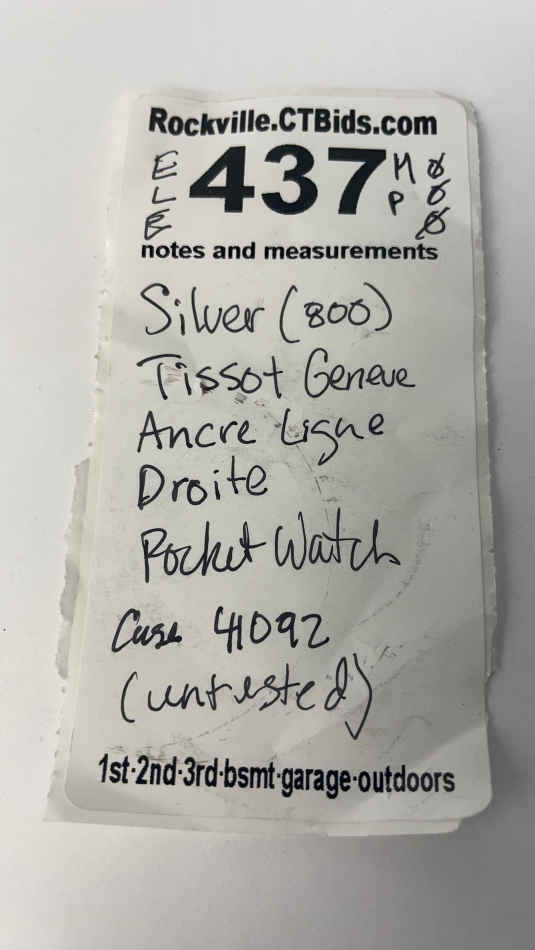 Rockville.CTBids.com
ELE 437 MP
notes and measurements
Silver (800)
Tissot Geneve
Ancre Ligne
Droite
Pocket Watch
Case 41092
(untested)
1st·2nd·3rd·bsmt·garage·outdoors